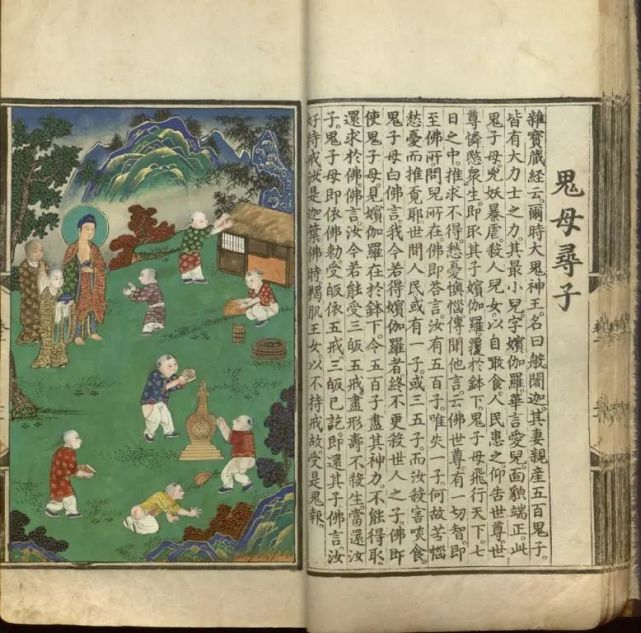 鬼母尋子
雜寶藏經云。爾時大鬼神王。名曰般闍迦。其妻親産五百鬼子。
皆有大力士之力。其最小兒。字嬪伽羅。華言愛兒。面貌端正。此
鬼子母兇妖暴虐。殺人兒女。以自敢食。人民患之。仰告世尊。世
尊憐愍衆生。即取其子嬪伽羅。覆於鉢下。鬼子母飛行天下。七
日之中。推求不得。愁憂懊惱。傳聞他言云。佛世尊有一切智。即
至佛所。問兒所在。佛即答言。汝有五百子。唯失一子。何故苦惱
愁憂而推覔耶。世間人民。或有一子。或三五子。而汝殺害啖食。
鬼子母白佛言。我今若得嬪伽羅者。終不更殺世人之子。佛即
使鬼子母見嬪伽羅在於鉢下。令五百子盡其神力。不能得取。
還求於佛。佛言汝今若能受三皈五戒。盡形壽不殺生。當還汝
子。鬼子母即依佛勅。受皈依五戒。三皈已訖。即還其子。佛言汝
好持戒。汝是迦葉佛時羯肌王女。以不持戒故。受是鬼報。